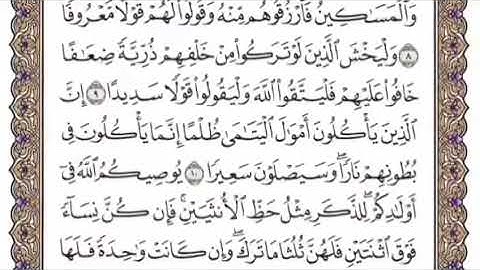 وَٱلْمَسَـٰكِينُ فَٱرْزُقُوهُم مِّنْهُ وَقُولُوا۟ لَهُمْ قَوْلًا مَّعْرُوفًا
٨ وَلْيَخْشَ ٱلَّذِينَ لَوْ تَرَكُوا۟ مِنْ خَلْفِهِمْ ذُرِّيَّةً ضِعَـٰفًا
خَافُوا۟ عَلَيْهِمْ فَلْيَتَّقُوا۟ ٱللَّهَ وَلْيَقُولُوا۟ قَوْلًا سَدِيدًا ٩ إِنَّ
ٱلَّذِينَ يَأْكُلُونَ أَمْوَٰلَ ٱلْيَتَـٰمَىٰ ظُلْمًا إِنَّمَا يَأْكُلُونَ فِى
بُطُونِهِمْ نَارًا ۖ وَسَيَصْلَوْنَ سَعِيرًا ١٠ يُوصِيكُمُ ٱللَّهُ فِىٓ
أَوْلَـٰدِكُمْ ۖ لِلذَّكَرِ مِثْلُ حَظِّ ٱلْأُنثَيَيْنِ ۚ فَإِن كُنَّ نِسَآءً
فَوْقَ ٱثْنَتَيْنِ فَلَهُنَّ ثُلُثَا مَا تَرَكَ ۖ وَإِن كَانَتْ وَٰحِدَةً فَلَهَا